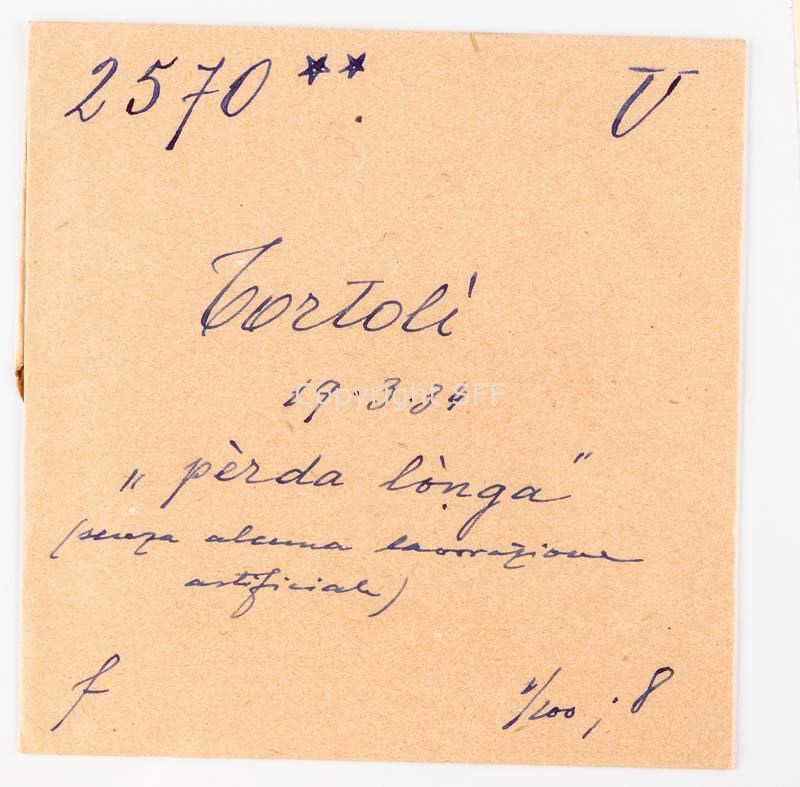 2570 ** V
Tortolì
19.3.34
Copyright SFF
„pèrda lònga"
(senza alcuna lavorazione
artificiale)
f 1/100 ; 8